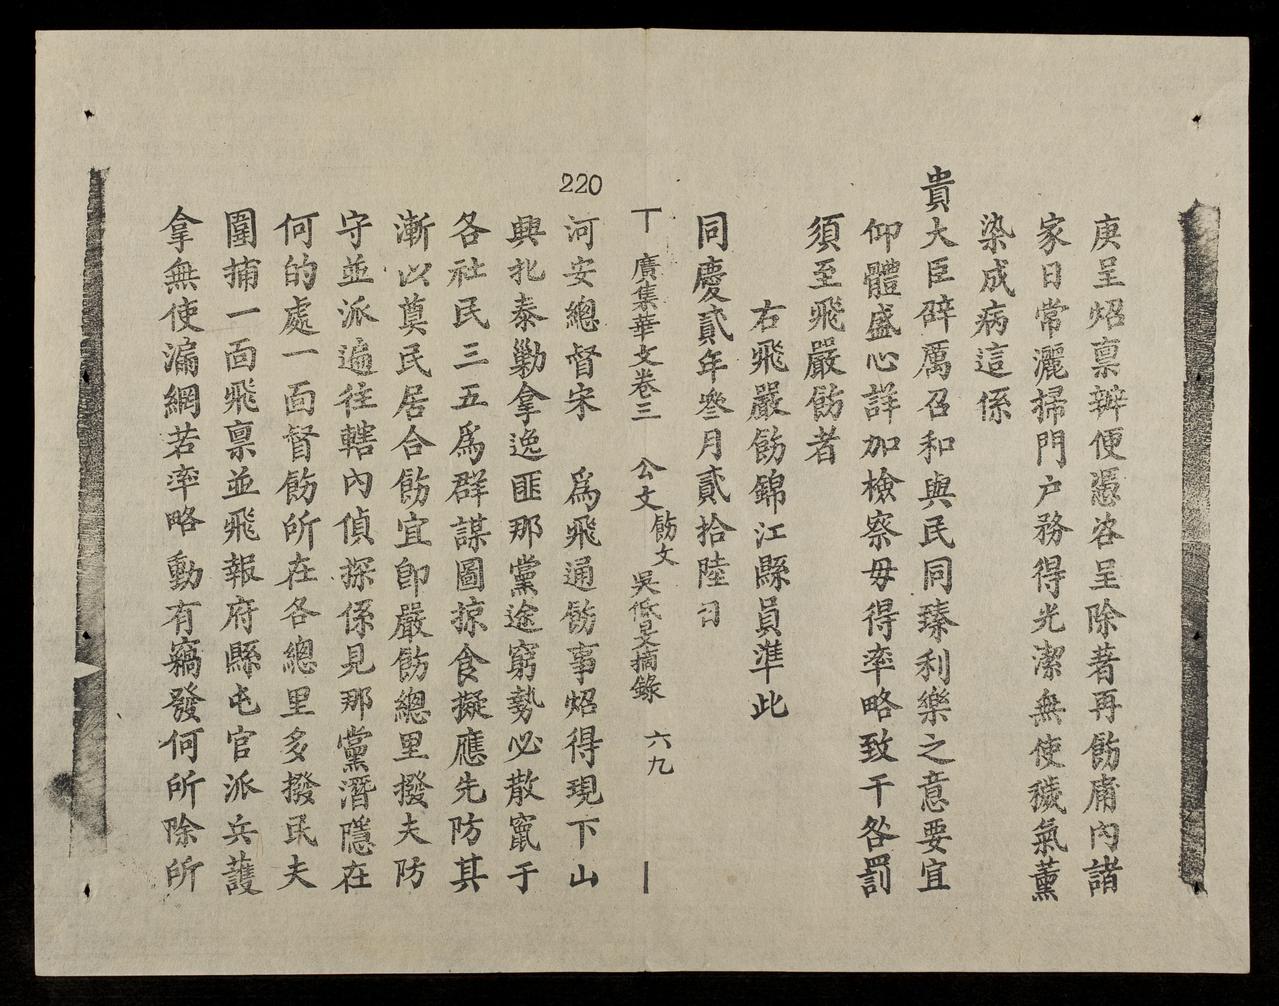 庚呈炤禀辦便憑咨呈除著再飭庯內諸
家日常灑掃門戶務得光潔無使穢氣薰
染成病這係
貴大臣辟厲召和與民同臻利樂之意要宜
仰體盛心詳加檢察毋得率略致干咎罰
須至飛嚴飭者
右飛嚴飭錦江縣員準此
同慶貳年叄月貳拾陸日
丁 廣集華文卷三 公文 飭文 吳低旻摘錄 六九
220
河安總督宋 爲飛通飭事炤得現下山
興北泰勦拿逸匪那黨途窮勢必散竄于
各社民三五爲群謀圖掠食擬應先防其
漸以奠民居合飭宜卽嚴飭總里撥夫防
守並派遍往轄內偵探係見那黨潛隱在
何的處一面督飭所在各總里多撥民夫
圍捕一面飛禀並飛報府縣屯官派兵護
拿無使漏網若率略動有竊發何所除所